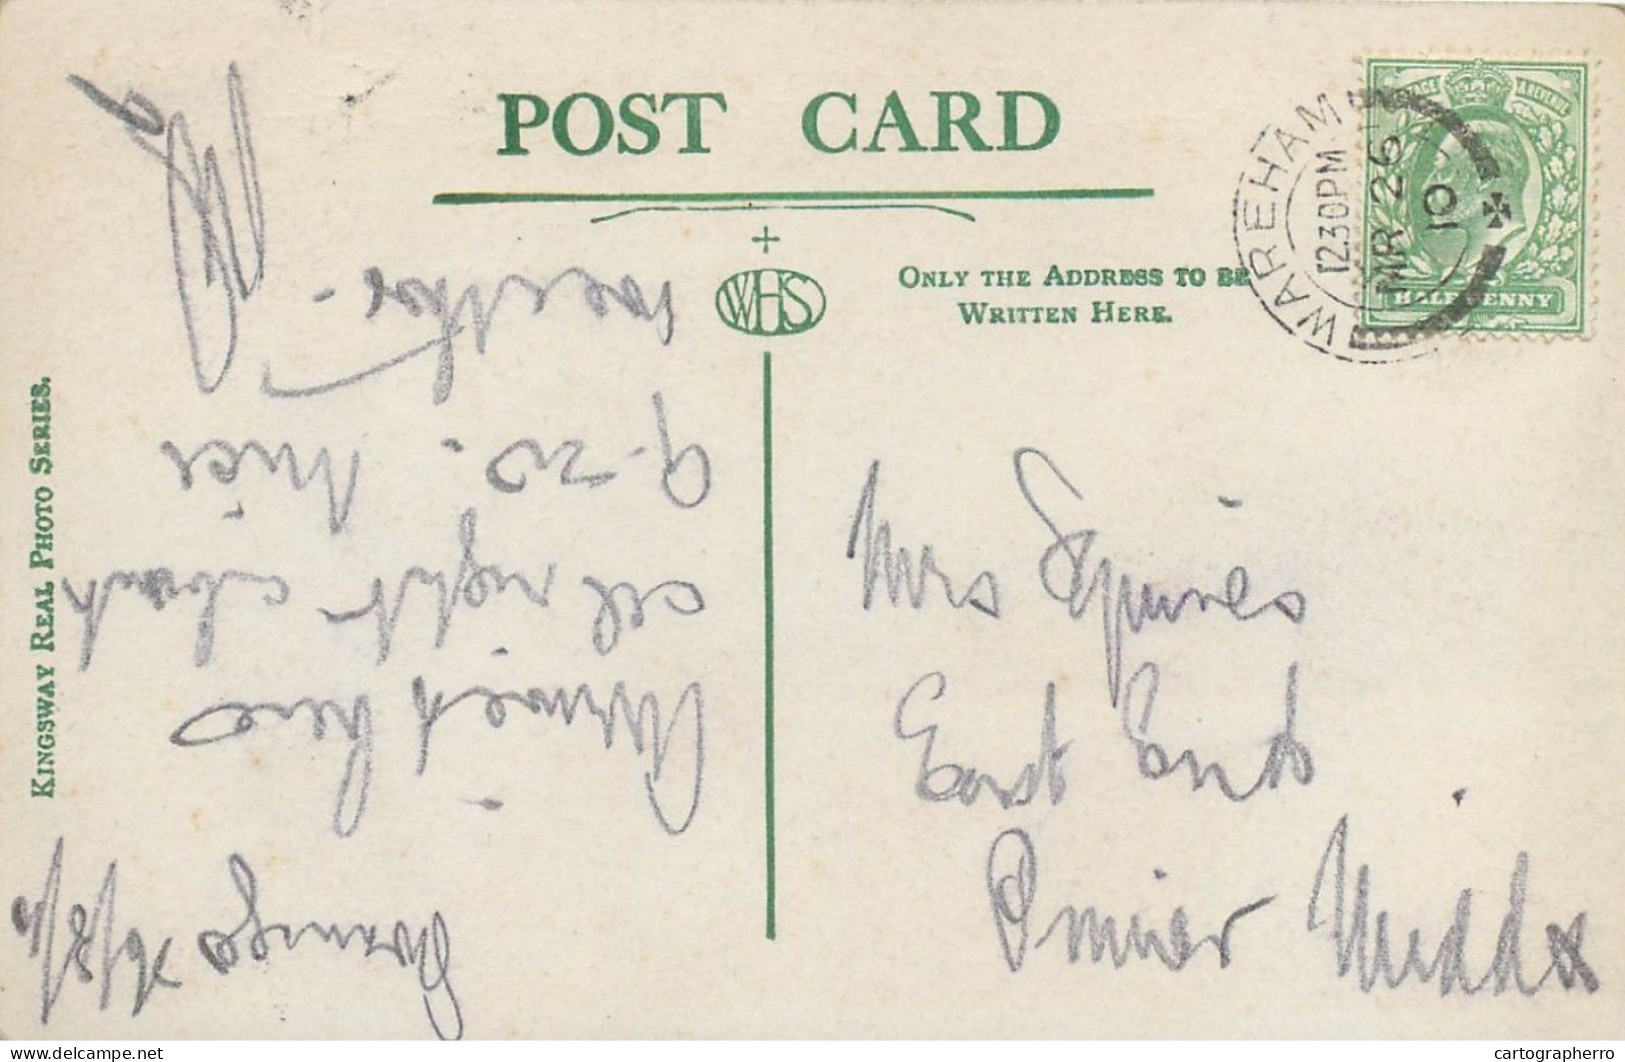 POST CARD
WHS
ONLY THE ADDRESS TO BE
WRITTEN HERE.
WAREHAM
12.30PM
MR 26
10
POSTAGE & REVENUE
HALFPENNY
KINGSWAY REAL PHOTO SERIES.
Swanage 26/3/10
Arrived here
all right about
9-20. Nice
weather.
Mrs Squires
East End
Pinner Middx
delcampe.net
cartographerro